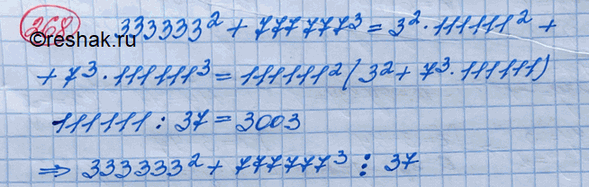 268
©reshak.ru
333333² + 777777³ = 3² · 111111² +
+ 7³ · 111111³ = 111111² (3² + 7³ · 111111)
111111 : 37 = 3003
⇒ 333333² + 777777³ ⋮ 37